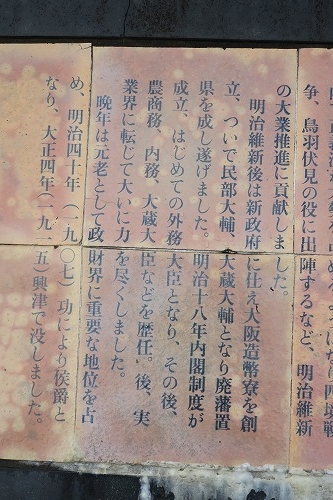 り四境戦
争、鳥羽伏見の役に出陣するなど、明治維新
の大業推進に貢献しました。
明治維新後は新政府に仕え大阪造幣寮を創
立、ついで民部大輔、大蔵大輔となり廃藩置
県を成し遂げました。明治十八年内閣制度が
成立、はじめての外務大臣となり、その後、
農商務、内務、大蔵大臣などを歴任。後、実
業界に転じて大いに力を尽くしました。
晩年は元老として政財界に重要な地位を占
め、明治四十年（一九〇七）功により侯爵と
なり、大正四年（一九一五）興津で没しました。